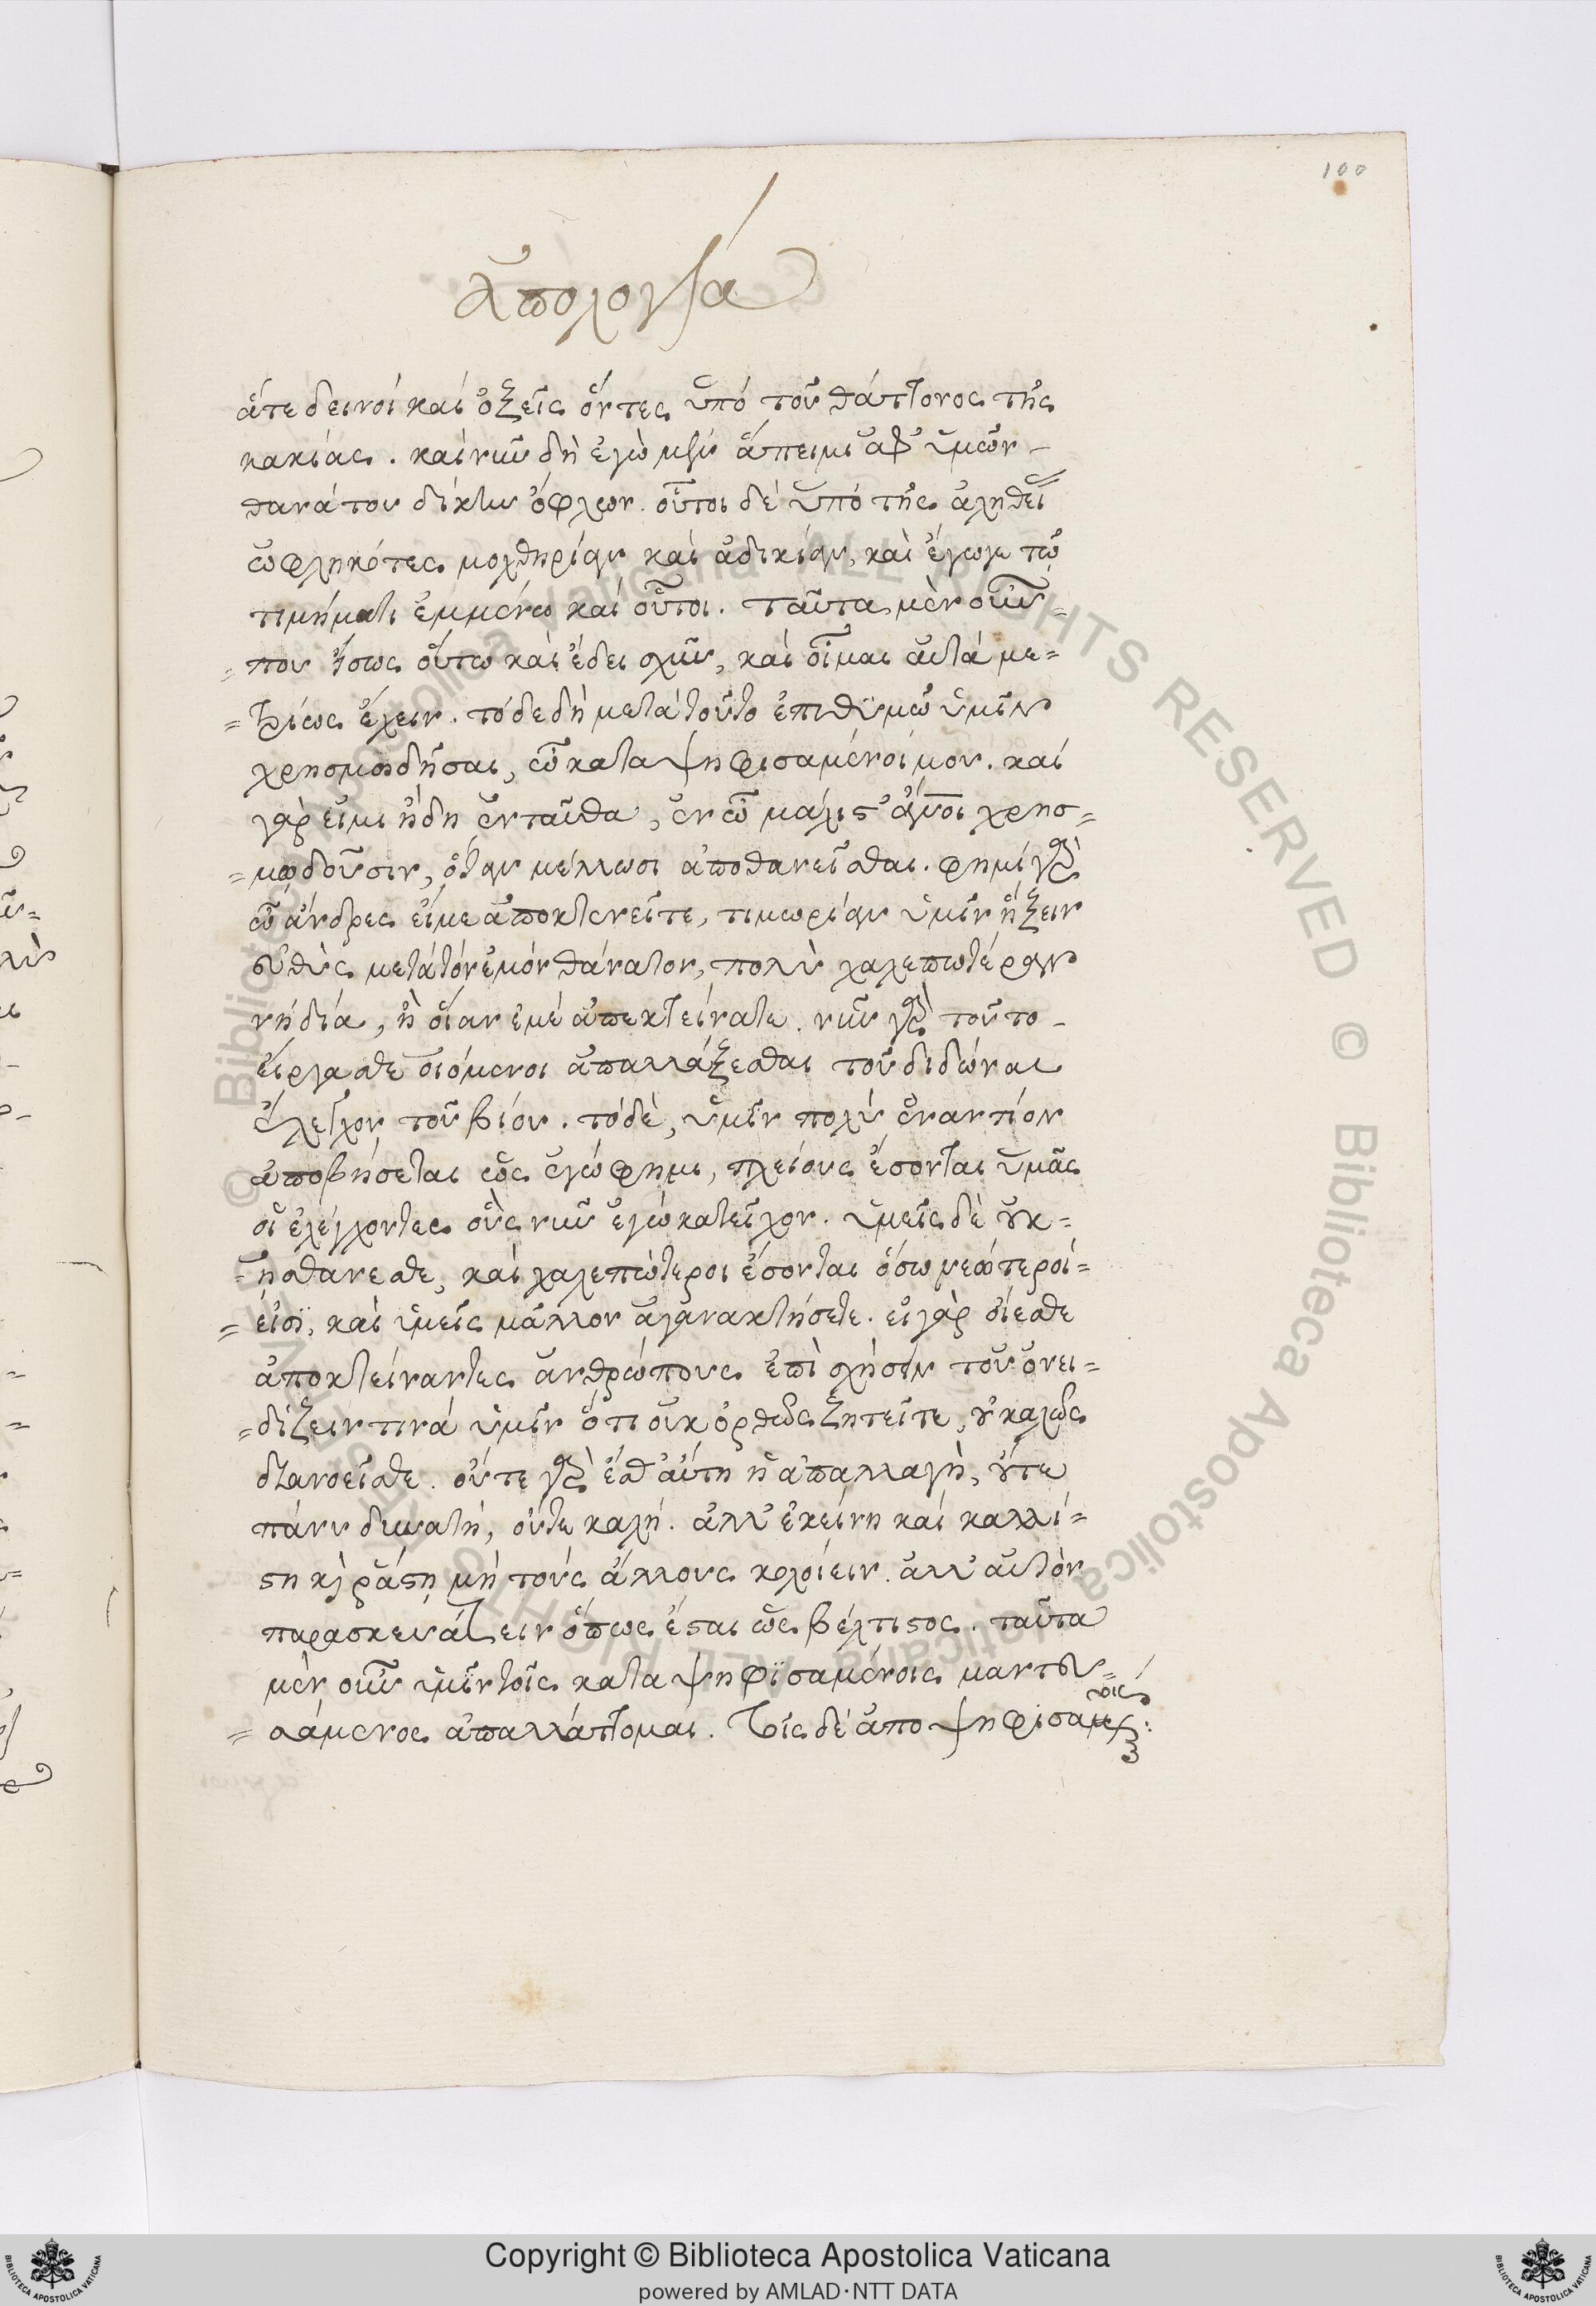 100
ἀπολογία
ἅτε δεινοὶ καὶ ὀξεῖς ὄντες ὑπὸ τοῦ θάττονος τῆς
κακίας. καὶ νῦν δὴ ἐγὼ μὲν ἄπειμι ὑφ' ὑμῶν
θανάτου δίκην ὄφλων. οὗτοι δὲ ὑπὸ τῆς ἀληθεί
ὠφληκότες μοχθηρίαν καὶ ἀδικίαν, καὶ ἔγωγε τῷ
τιμήματι ἐμμένω καὶ οὗτοι. ταῦτα μὲν οὖν
που ἴσως οὕτω καὶ ἔδει σχεῖν, καὶ οἶμαι αὐτὰ με=
=τρίως ἔχειν. τὸ δὲ δὴ μετὰ τοῦτο ἐπιθυμῶ ὑμῖν
χρησμωδῆσαι, ὦ καταψηφισάμενοί μου. καὶ
γάρ εἰμι ἤδη ἐνταῦθα, ἐν ᾧ μάλιστ' ἄνοι χρησ=
=μῳδοῦσιν, ὅταν μέλλωσι ἀποθανεῖσθαι. φημὶ γὰρ
ὦ ἄνδρες εἴ με ἀποκτενεῖτε, τιμωρίαν ὑμῖν ἥξειν
εὐθὺς μετὰ τὸν ἐμὸν θάνατον, πολὺ χαλεπωτέραν
νὴ δία, ἢ οἵαν ἐμὲ ἀπεκτείνατε. νῦν γὰρ τοῦτο
εἴργασθε οἰόμενοι ἀπαλλάξεσθαι τοῦ διδόναι
ἔλεγχον τοῦ βίου. τὸ δὲ, ὑμῖν πολὺ ἐναντίον
ἀποβήσεται ὡς ἐγώ φημι, πλείους ἔσονται ὑμᾶς
οἱ ἐλέγχοντες οὓς νῦν ἐγὼ κατεῖχον. ὑμεῖς δὲ οὐκ=
=ᾐσθάνεσθε, καὶ χαλεπώτεροι ἔσονται ὅσω νεώτεροί=
=εἰσι, καὶ ὑμεῖς μᾶλλον ἀγανακτήσετε. εἰ γὰρ οἴεσθε
ἀποκτείναντες ἀνθρώπους ἐπισχήσειν τοῦ ὀνει=
=δίζειν τινὰ ὑμῖν ὅτι οὐκ ὀρθῶς ζητεῖτε, οὐ καλῶς
διανοεῖσθε. οὔτε γὰρ ἔσθ' αὕτη ἡ ἀπαλλαγὴ, οὔτε
πάνυ δυνατὴ, οὔτε καλή. ἀλλ' ἐκείνη καὶ καλλί=
στη καὶ ῥᾴστη μὴ τοὺς ἄλλους κολούειν. ἀλλ' αὑτὸν
παρασκευάζειν ὅπως ἔσται ὡς βέλτιστος. ταῦτα
μὲν οὖν ὑμῖν τοῖς καταψηφισαμένοις μαντευ=
=σάμενος ἀπαλλάττομαι. τοῖς δὲ ἀποψηφισαμένοις
Copyright © Biblioteca Apostolica Vaticana
powered by AMLAD·NTT DATA